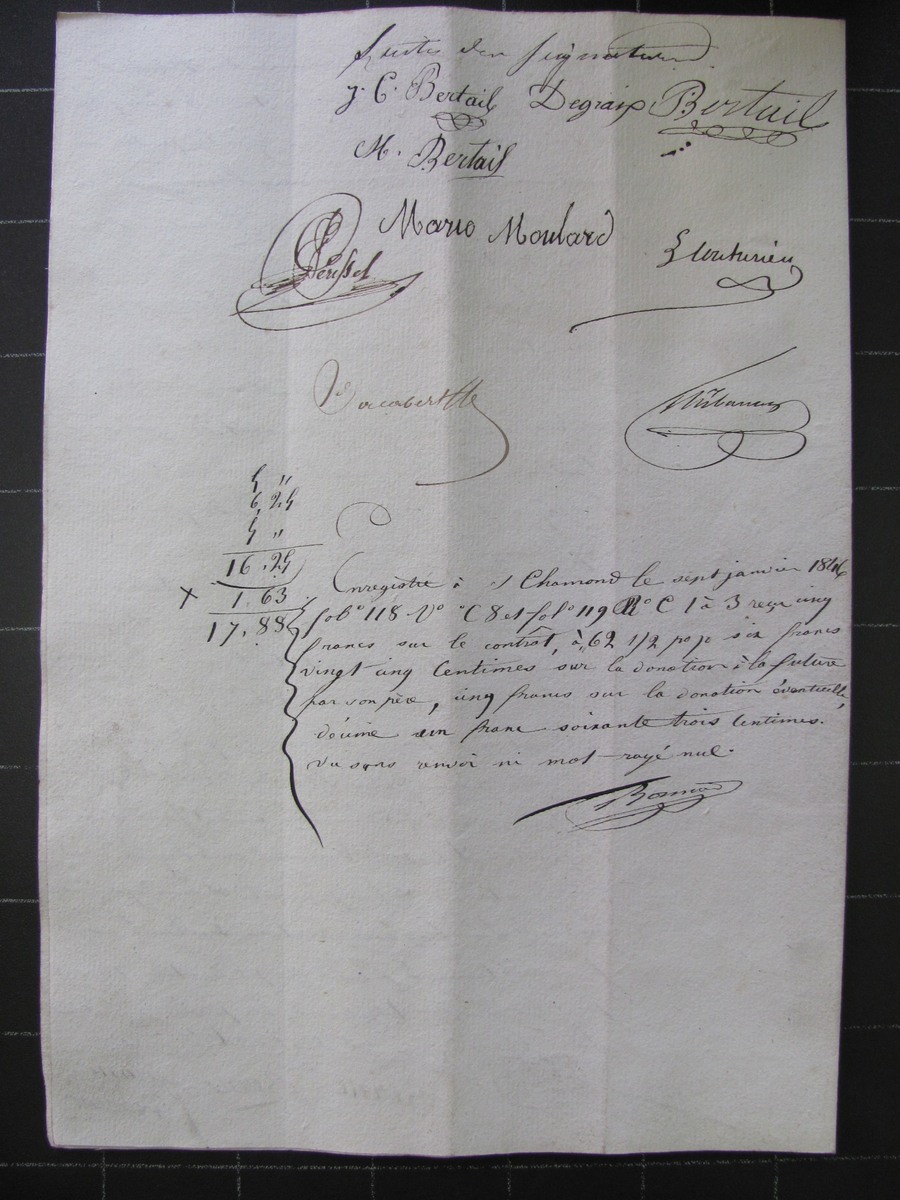 Suite des Signatures
J. C. Bertail Degraix Bertail
M. Bertail
Mario Moulard
5 "
6,25
5 "
16,25
1,63
17,88
Enregistré à St Chamond le sept janvier 1846
fol° 118 V° C 8 et fol° 119 R° C 1 à 3 reçu cinq
francs sur le contrat, à 62 1/2 p % six francs
vingt cinq Centimes sur la donation à la future
par son père, cinq francs sur la donation éventuelle,
décime un franc soixante trois Centimes.
Vu sans renvoi ni mot rayé nul.